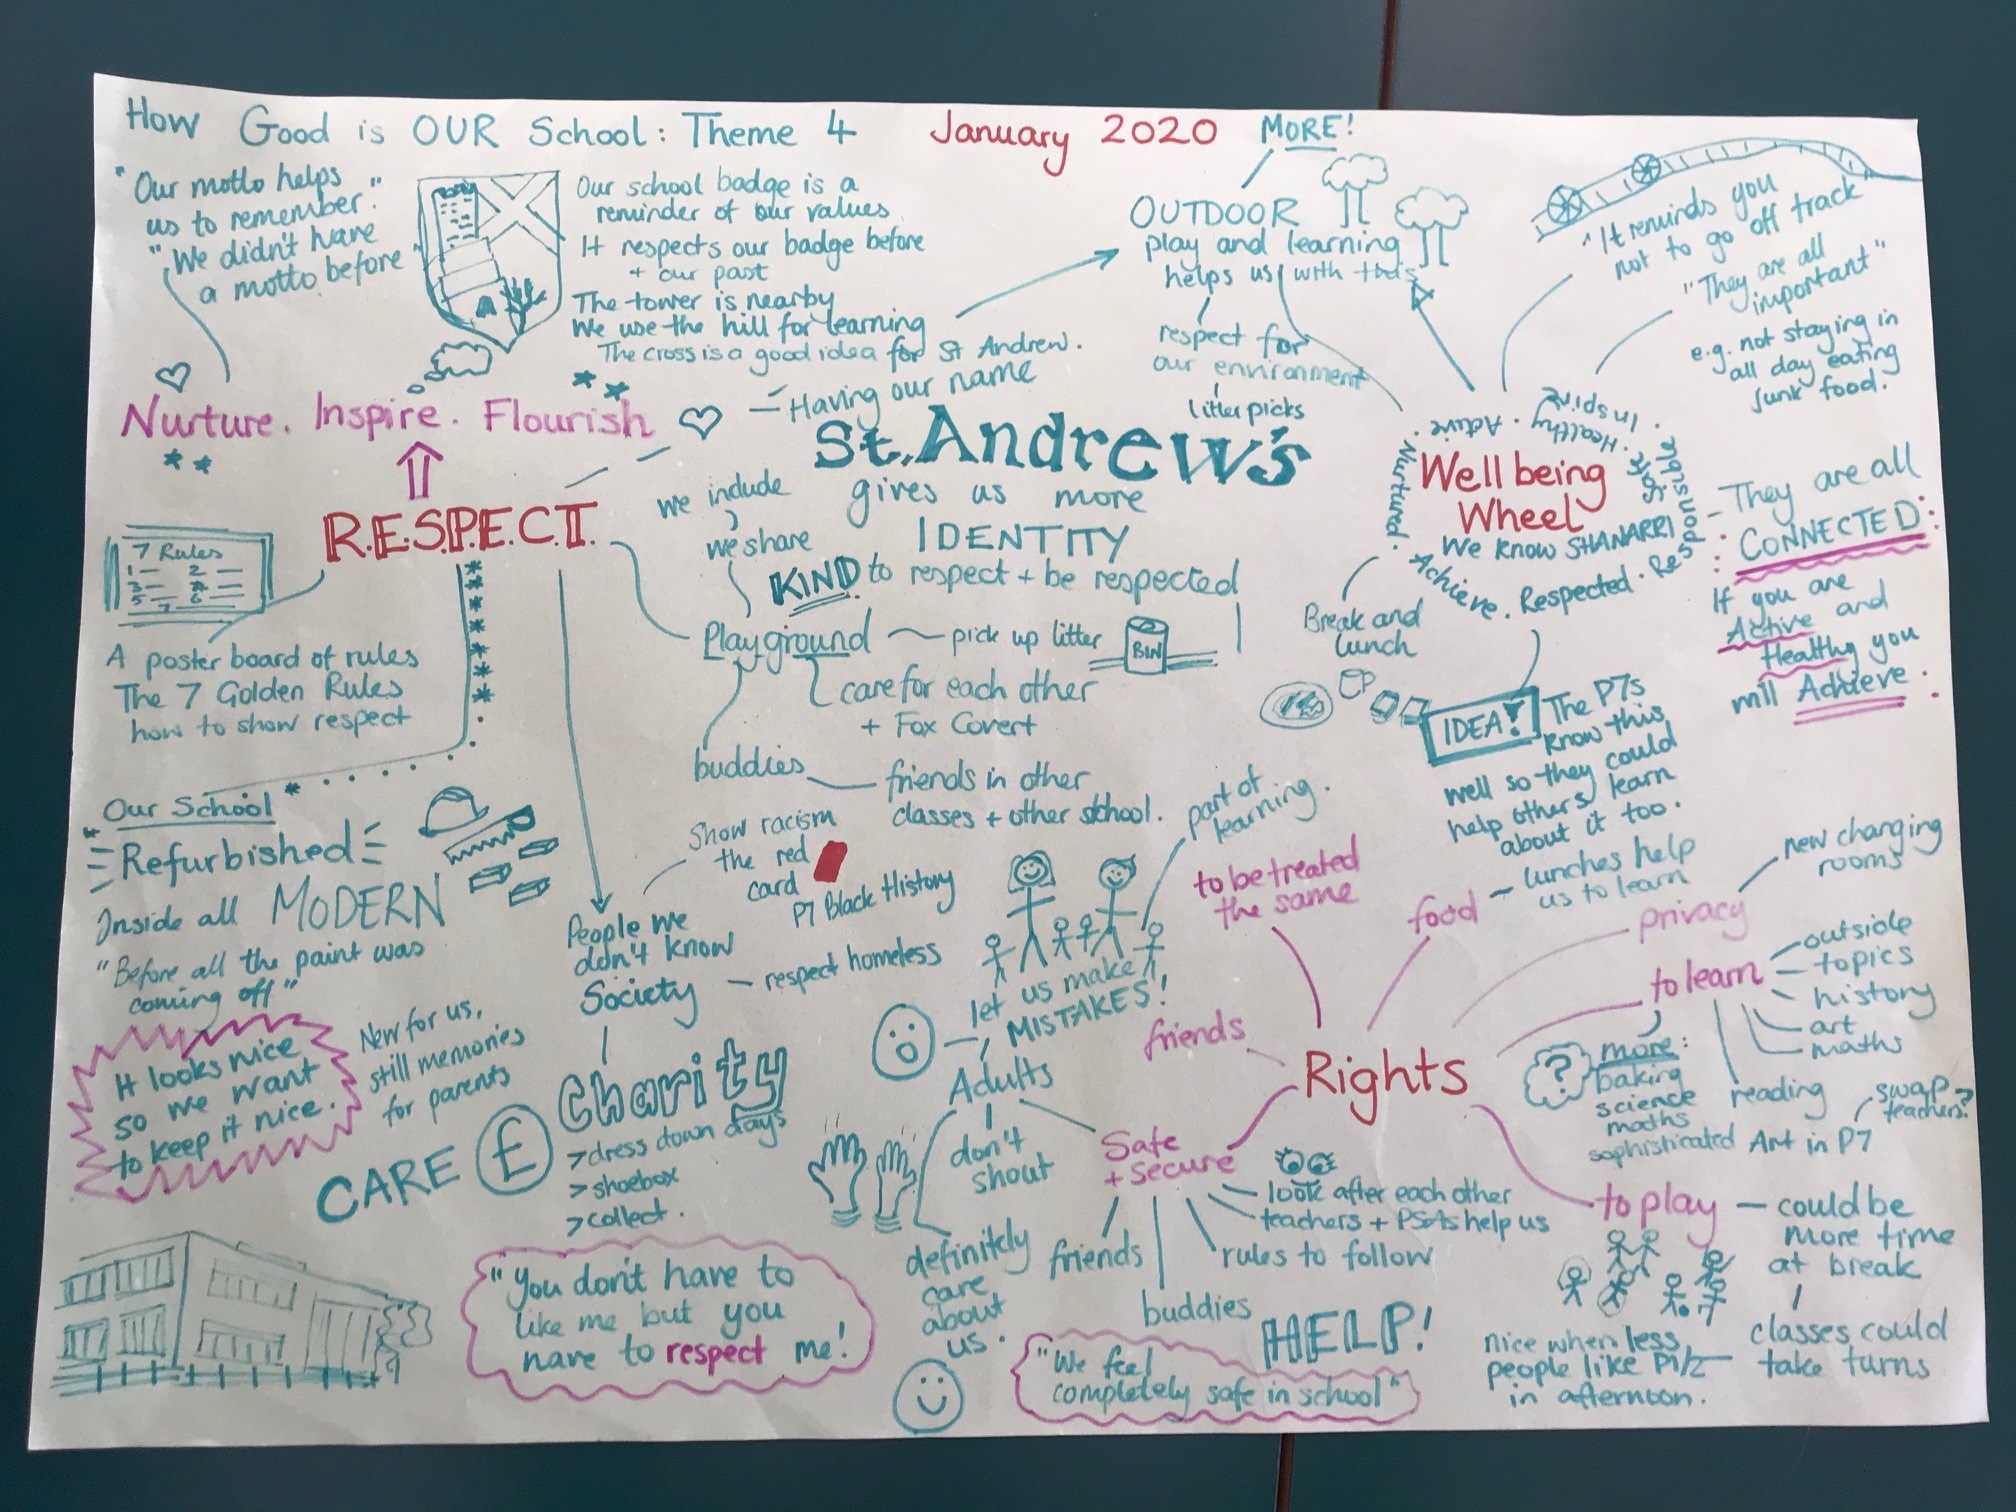 How Good is OUR School: Theme 4 January 2020
MORE!
"Our motto helps
us to remember."
"We didn't have
a motto before"
Our school badge is a
reminder of our values
It respects our badge before
+ our past
The tower is nearby
We use the hill for learning
The cross is a good idea for St Andrew.
OUTDOOR
play and learning
helps us with this
respect for
our environment
litter picks
"It reminds you
not to go off track
"They are all
important"
e.g. not staying in
all day eating
junk food.
Nurture. Inspire. Flourish
R.E.S.P.E.C.T.
- Having our name
St. Andrew's
gives us more
IDENTITY
to respect + be respected
we include
we share
KIND
Playground
pick up litter
BIN
care for each other
+ Fox Covert
buddies
friends in other
classes + other school.
7 Rules
1 — 2 —
3 —
5 — 6 —
7
A poster board of rules
The 7 Golden Rules
how to show respect
Well being
Wheel
We know SHANARRI
Nurtured. Active. Healthy. Inspire.
Safe
Achieve. Respected. Responsible.
They are all
CONNECTED
If you are
Active and
Healthy you
will Achieve.
Break and
lunch
IDEA!
The P7s
know this
well so they could
help others learn
about it too.
Our School
"Refurbished
Inside all MODERN
"Before all the paint was
coming off"
It looks nice
so we want
to keep it nice.
New for us,
still memories
for parents
CARE £
People we
don't know
Society
Show racism
the red
card
P7 Black History
respect homeless
Charity
> dress down days
> shoebox
> collect.
"You don't have to
like me but you
have to respect me!
part of
learning.
let us make
MISTAKES!
Adults
don't
shout
definitely
care
about
us.
Rights
to be treated
the same
food
lunches help
us to learn
privacy
new changing
rooms
friends
to learn
outside
topics
history
art
maths
reading
?
more:
baking
science
maths
sophisticated Art in P7
swap
teachers?
Safe
+ secure
look after each other
teachers + PSAs help us
rules to follow
friends
buddies
HELP!
"We feel
completely safe in school"
to play
could be
more time
at break
classes could
take turns
nice when less
people like P1/2
in afternoon.